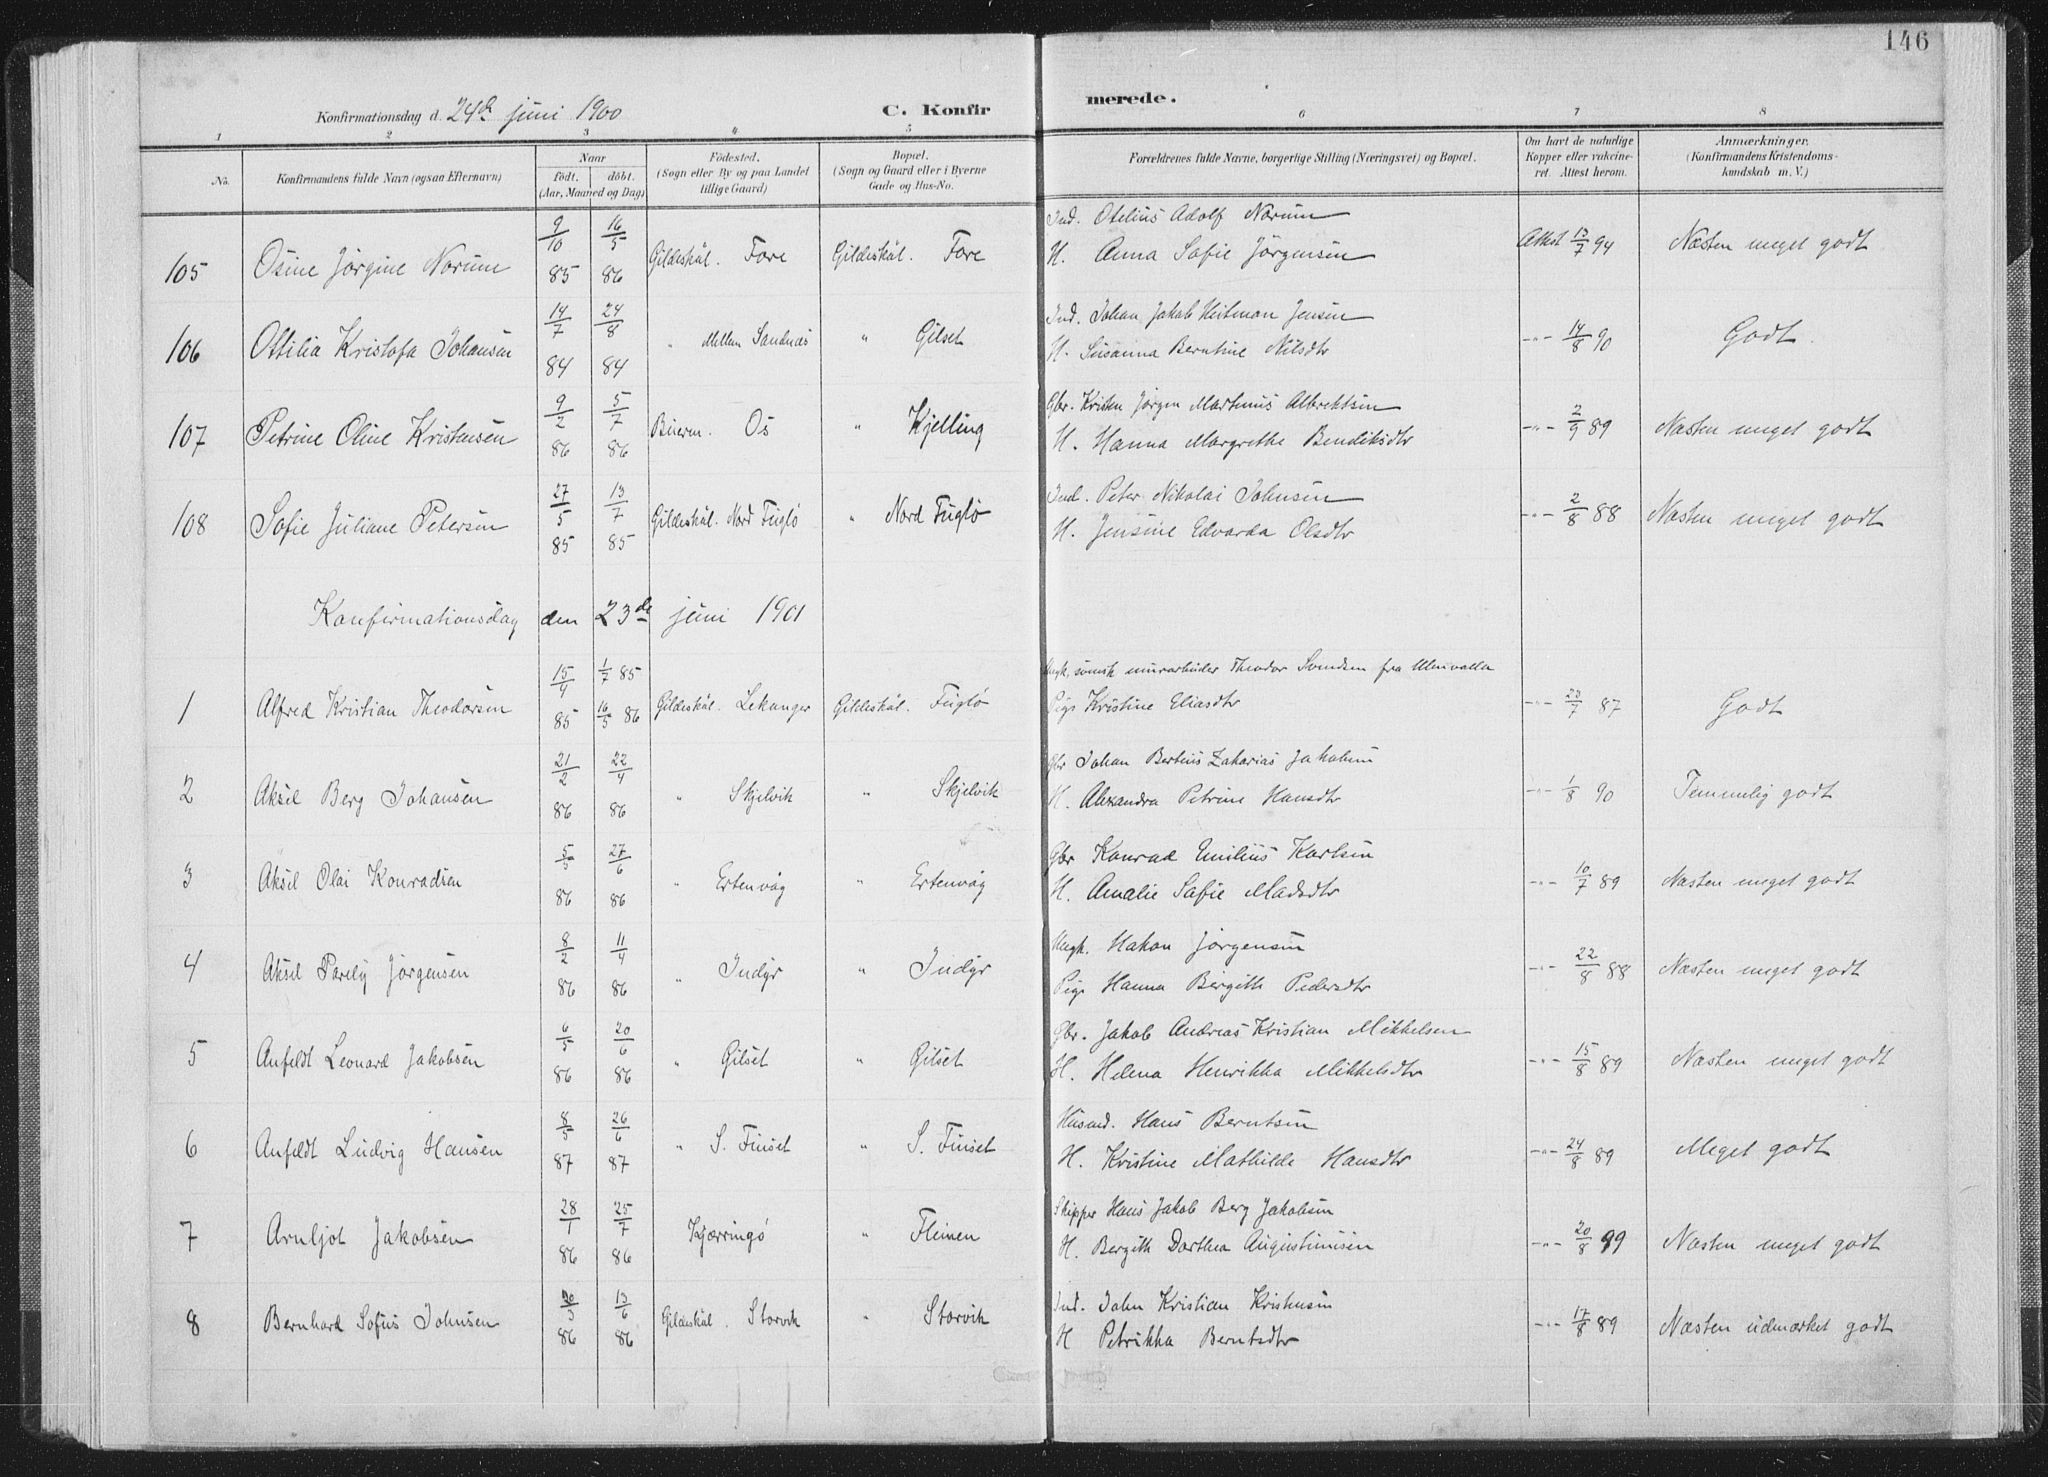 146
Konfirmationsdag d. 24de juni 1900 C. Konfirmerede.
1 2 3 4 5 6 7 8
No. Konfirmandens fulde Navn (ogsaa Efternavn) Naar Født. døbt. (Aar, Maaned og Dag) Fødested. (Sogn eller By og paa Landet tillige Gaard) Bopæl. (Sogn og Gaard eller i Byerne Gade og Hus-No. Forældrenes fulde Navne, borgerlige Stilling (Næringsvei) og Bopæl. Om havt de naturlige Kopper eller vakcineret. Attest herom. Anmærkninger. (Konfirmandens Kristendomskundskab m. V.)
105 Osine Jørgine Norum 9/10 85 16/5 86 Gildeskål. Fore Gildeskål. Fore Ind. Otelius Adolf Norum
H. Anna Sofie Jørgensen Attest 13/7 94 Næsten meget godt
106 Ottilia Kristofa Johansen 14/7 84 24/8 84 " Mellem Sandnæs " Gilset Ind. Johan Jakob Heitman Jensen
H. Susanna Berntine Nilsdtr -"- 14/8 90 Godt.
107 Petrine Oline Kristensen 9/2 86 5/7 86 Beieren. Os " Kjelling Gbr. Kristen Jørgen Martinus Albrektsen
H. Hanna Margrethe Bendiksdtr -"- 2/9 89 Næsten meget godt
108 Sofie Juliane Petersen 27/5 85 13/7 85 Gildeskål. Nord Fuglø " Nord Fuglø Ind. Peter Nikolai Johnsen
H. Jensine Edvarda Olsdtr -"- 2/8 88 Næsten meget godt
Konfirmationsdag den 23de juni 1901
1 Alfred Kristian Theodorsen 15/4 85 1/7 85 16/5 86 Gildeskål. Lekanger Gildeskål. Fuglø Ungk. svensk murarbeider Theodor Svendsen fra Uleivalla
Pige Kristine Eliasdtr -"- 20/7 87 Godt
2 Aksel Berg Johansen 21/2 86 22/4 86 " Skjelvik " Skjelvik Gbr Johan Bertius Zakarias Jakobsen
H. Alexandra Petrine Hansdtr -"- 1/8 90 Temmelig godt
3 Aksel Olai Konradsen 5/5 86 27/6 86 " Ertenvåg " Ertenvåg Gbr Konrad Emilius Karlsen
H. Amalie Sofie Madsdtr -"- 10/7 89 Næsten meget godt
4 Aksel Parely Jørgensen 8/2 86 11/4 86 " Indyr " Indyr Ungk. Hakon Jørgensen
Pige Hanna Bergith Pedersdtr -"- 22/8 88 Næsten meget godt
5 Anfeldt Leonard Jakobsen 6/5 86 20/6 86 " Gilset " Gilset Gbr. Jakob Andreas Kristian Mikkelsen
H. Helena Henrikka Mikkelsdtr -"- 15/8 89 Næsten meget godt
6 Anfeldt Ludvig Hansen 8/5 87 26/6 87 " S. Finset " S. Finset Husmd. Hans Berntsen
H. Kristine Mathilde Hansdtr -"- 24/8 89 Meget godt
7 Arnljot Jakobsen 28/1 86 25/7 86 Kjærringø " Fleinen Skipper Hans Jakob Berg Jakobsen
H. Bergith Dorthea Augustinusen -"- 20/8 99 Næsten meget godt
8 Bernhard Sofus Johnsen 30/3 86 13/6 86 Gildeskål. Storvik " Storvik Ind. John Kristian Kristensen
H Petrikka Berntsdtr -"- 17/8 89 Næsten udmærket godt